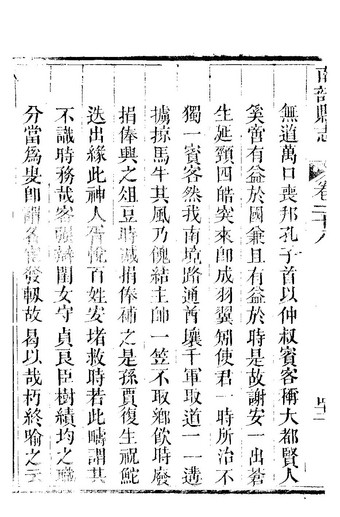 南部縣志
卷二十八
無道萬口喪邦孔子首以仲叔賓客稱大都賢人
奚啻有益於國兼且有益於時是故謝安一出蒼
生延頸四皓奕來卽成羽翼矧使君一時所治不
獨一賓客然我南境路通酋壤千軍取道一一遘
擄掠馬牛其風乃傀結主師一笠不取鄉飲時廢
捐俸興之俎豆時誠捐俸補之是孫賈復生祝鮀
迭出緣此神人胥悅百姓安堵救時若此疇謂其
不識時務哉客辴辯閨女守貞良臣樹績均之職
分當爲叟卽謂名實發軔故曷以哉朽終喻之云